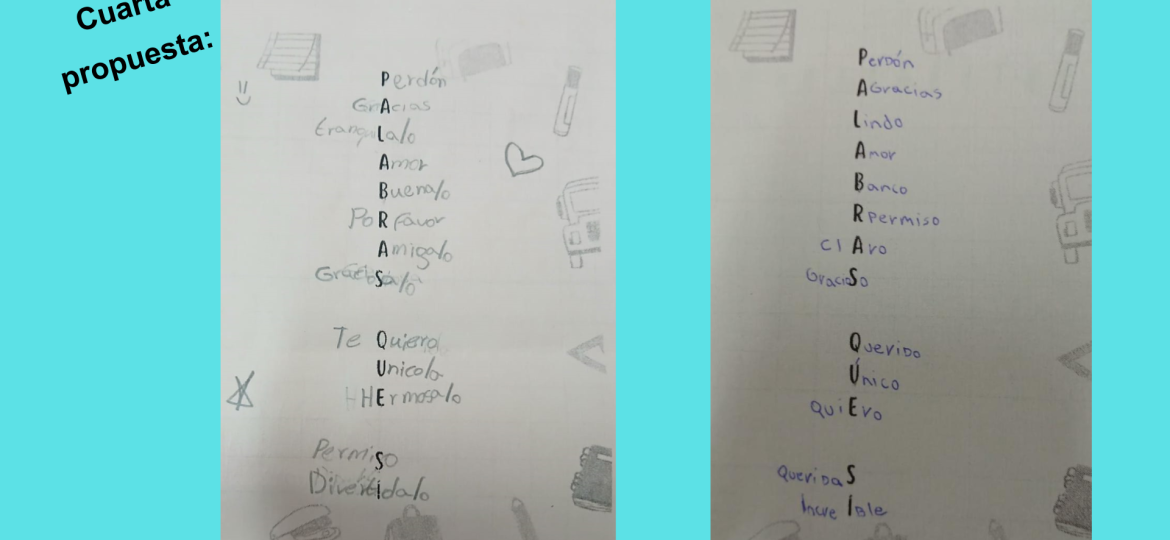 Cuarta
propuesta:
Perdón
GrAcias
tranquiLa/o
Amor
Buena/o
PoR favor
Amiga/o
GracioSa/o
Te Quiero
Unico/a
HErmosa/o
PermiSo
Divertida/o
Perdón
AGracias
Lindo
Amor
Banco
Rpermiso
ClAro
GracioSo
Querido
Único
quiEro
QueridaS
IncreÍble